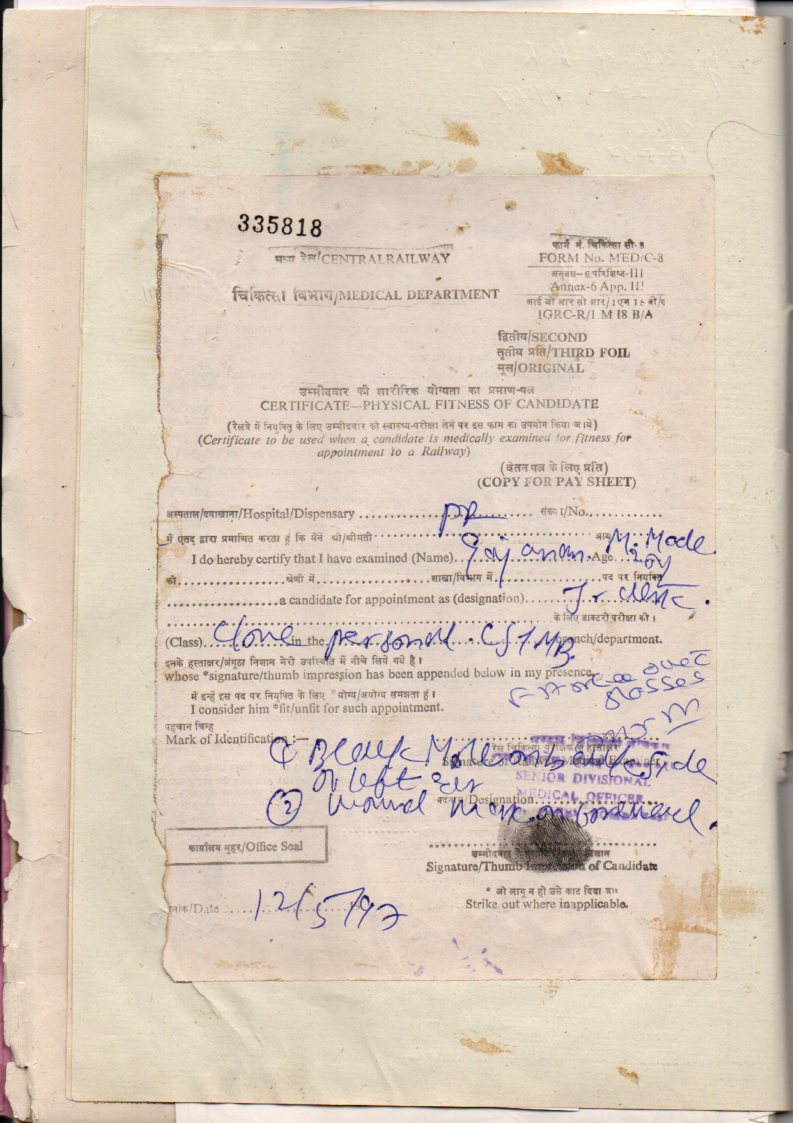 335818
मध्य रेल/CENTRAL RAILWAY
फार्म नं. चिकित्सा सी-8
FORM No. MED/C-8
अनुबंध-6 परिशिष्ट-III
Annex-6 App. III
चिकित्सा विभाग/MEDICAL DEPARTMENT
IGRC-R/1 M 18 B/A
द्वितीय/SECOND
तृतीय प्रति/THIRD FOIL
मूल/ORIGINAL
उम्मीदवार की शारीरिक योग्यता का प्रमाण-पत्र
CERTIFICATE—PHYSICAL FITNESS OF CANDIDATE
(रेलवे में नियुक्ति के लिए उम्मीदवार की स्वास्थ्य-परीक्षा लेने पर इस फार्म का उपयोग किया जाये)
(Certificate to be used when a candidate is medically examined for fitness for
appointment to a Railway)
(वेतन पत्र के लिए प्रति)
(COPY FOR PAY SHEET)
अस्पताल/दवाखाना/Hospital/Dispensary संख्या/No.
मैं एतद् द्वारा प्रमाणित करता हूं कि मैंने श्री/श्रीमती आयु M. Mode
I do hereby certify that I have examined (Name) Gajanan Age 20y
को श्रेणी में शाखा/विभाग में पद पर नियुक्ति
a candidate for appointment as (designation) Jr clerk.
के लिए डाक्टरी परीक्षा की।
(Class) in the personal. CSTMB. branch/department.
इनके हस्ताक्षर/अंगूठा निशान मेरी उपस्थिति में नीचे लिये गये है।
whose *signature/thumb impression has been appended below in my presence.
glasses
में इन्हें इस पद पर नियुक्ति के लिए *योग्य/अयोग्य समझता हूं।
I consider him *fit/unfit for such appointment.
पहचान चिन्ह
Mark of Identification :—
① Black Mole on side
of left ear
SENIOR DIVISIONAL
MEDICAL OFFICER
पदनाम/Designation
② wound mark on forehead.
कार्यालय मुहर/Office Seal
Signature/Thumb Impression of Candidate
* जो लागू न हो उसे काट दिया जाए
Strike out where inapplicable.
दिनांक/Date 12/5/97